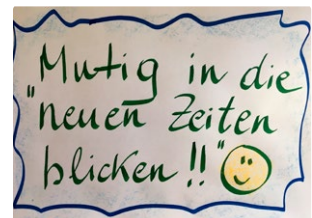 Mutig in die
"neuen Zeiten
blicken!!"